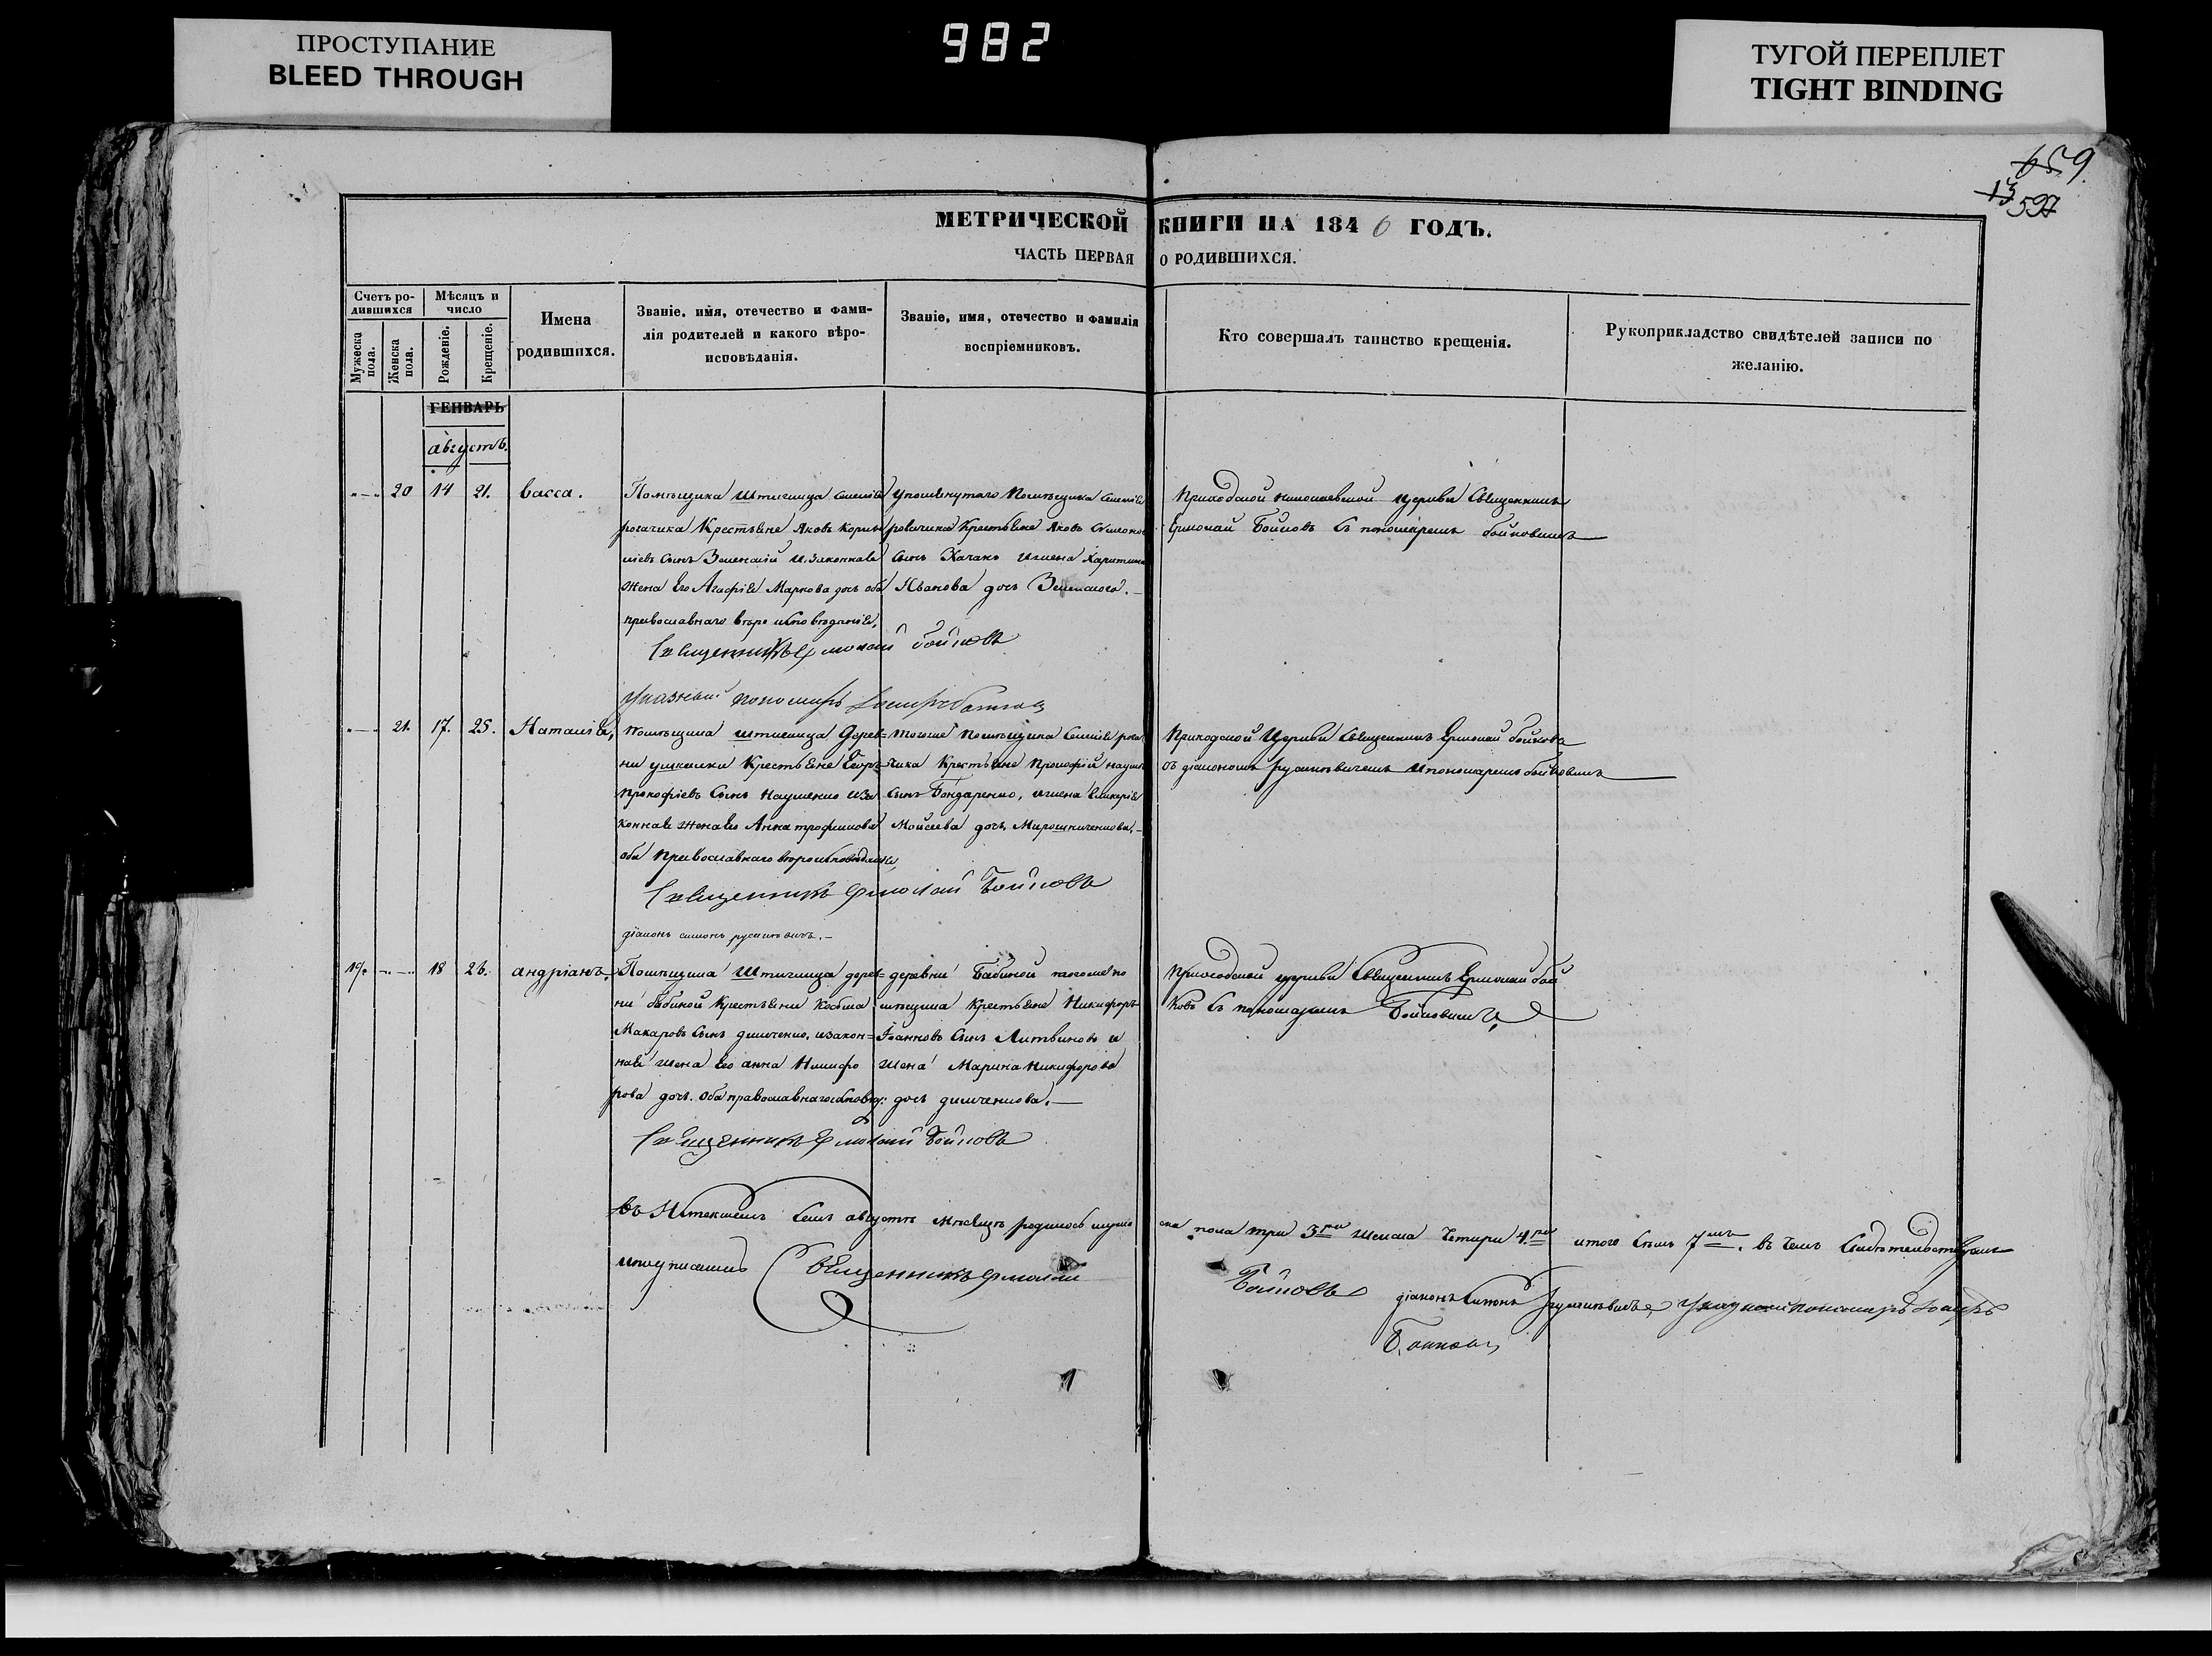 ПРОСТУПАНИЕ
BLEED THROUGH
982
ТУГОЙ ПЕРЕПЛЕТ
TIGHT BINDING
659.
13
597
МЕТРИЧЕСКОЙ КНИГИ НА 1846 ГОДЪ.
ЧАСТЬ ПЕРВАЯ О РОДИВШИХСЯ.
Счетъ ро-
дившихся
Мѣсяцъ и
число
Мужеска
пола.
Женска
пола.
Рожденіе.
Крещеніе.
Имена
родившихся.
Званіе, имя, отечество и фами-
лія родителей и какого вѣро-
исповѣданія.
Званіе, имя, отечество и фамилія
воспріемниковъ.
Кто совершалъ таинство крещенія.
Рукоприкладство свидѣтелей записи по
желанію.
ГЕНВАРЬ
августъ.
20 14 21. васса.
Помѣщика Штиглица
рогачика Крестьяне Яковъ
сынъ Зеленскій и законная
жена его Агафія Маркова дочь оба
православнаго вѣроисповѣданія,
Священникъ Ермолай Бойковъ
Указный пономарь
упомянутаго помѣщика
рогачика Крестьяне Яковъ
сынъ Хачако и жена Харитина
Иванова дочь Зеленского.
Приходской николаевской церкви Священникъ
Ермолай Бойковъ съ пономаремъ бойковымъ
21. 17. 25. Наталія,
помѣщика штиглица дерев=
ни ушкалки Крестьяне Егоръ
Прокофіевъ сынъ Науменко и за
конная жена его Анна трофимова
оба православнаго вѣроисповѣданія,
Священникъ Ермолай Бойковъ
діаконъ симонъ
тогоже помѣщика
чика Крестьяне Прокофій наумовъ
сынъ Бондаренко, и жена Гликерія
Моисеева дочь Мирошниченкова.
Приходской Церкви Священникъ Ермолай бойковъ
съ діакономъ и пономаремъ бойковымъ
19. 18 26. андріанъ,
Помѣщика Штиглица дерев=
ни бабиной Крестьяни Косьма
Макаровъ сынъ димченко, и закон=
ная жена его анна Никифо
рова дочь. оба православнаго исповѣд:
Священникъ Ермолай Бойковъ
деревни Бабиной тогоже по
мѣщика Крестьяне Никифоръ
Іоанновъ сынъ Литвиновъ и
жена Марина Никифорова
дочь димченкова.
Приходской церкви Священникъ Ермолай бой
ковъ съ пономаремъ Бойковымъ,
въ Истекшемъ семъ августѣ мѣсяцѣ родилось муже ска пола три 3 ри женска Четири 4. ри итого семь 7 мъ. въ чемъ свидѣтельствуемъ
и подписомъ Священникъ Ермолай Бойковъ діаконъ Симонъ Указный пономарь
Бойковъ